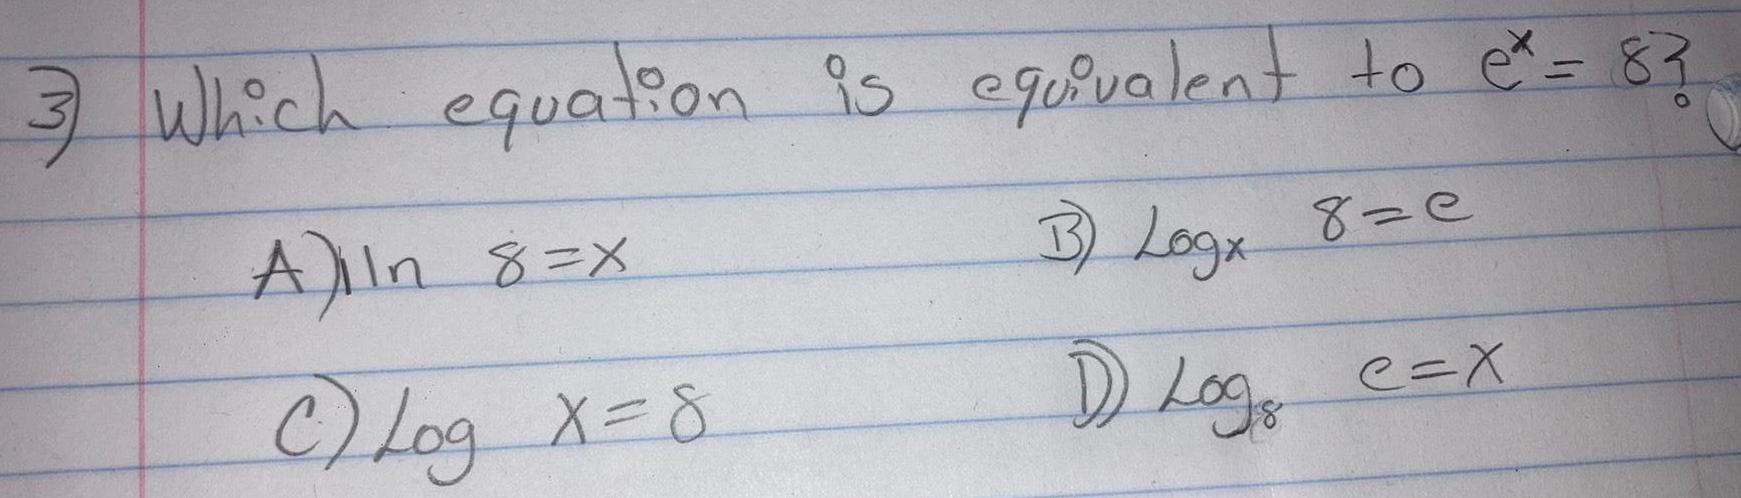 3) Which equation is equivalent to eˣ = 8?
A) ln 8 = x
B) Logₓ 8 = e
C) Log x = 8
D) Log₈ e = x